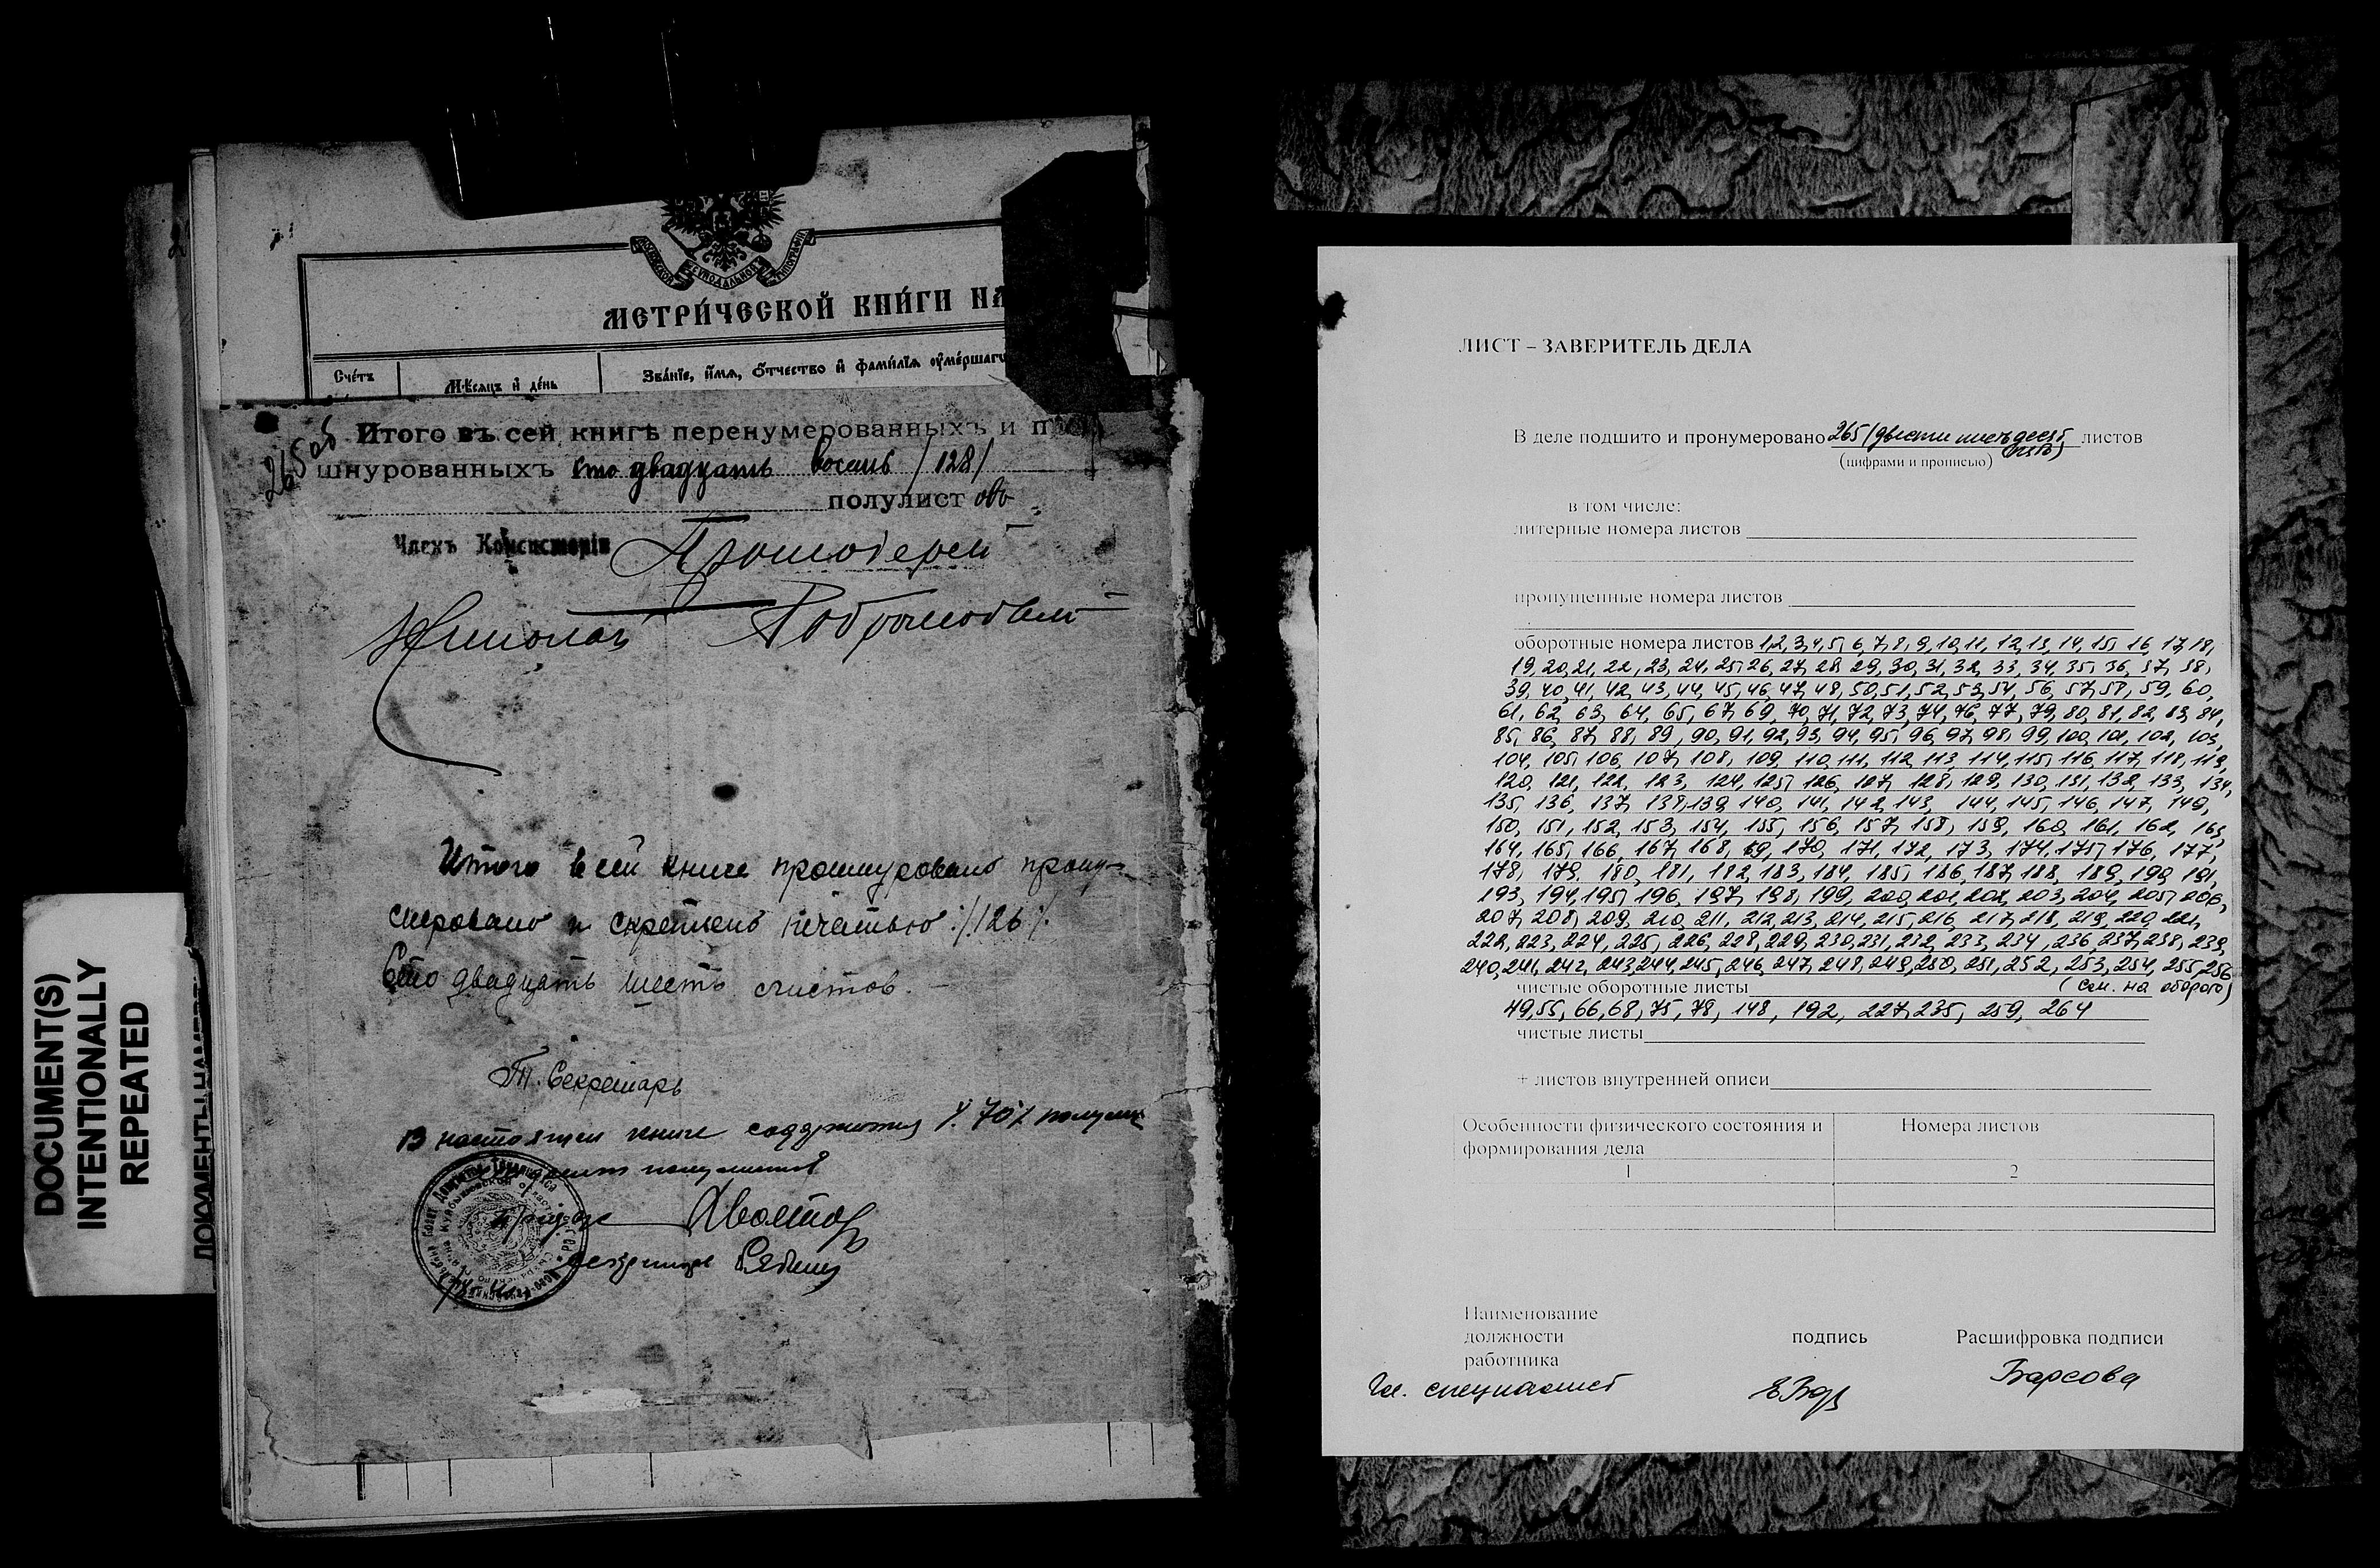 DOCUMENT(S)
INTENTIONALLY
REPEATED
МОСКОВСКОЙ СѴНОДАЛЬНОЙ ТИПОГРАФІИ
МЕТРИ́ЧЕСКОЙ КНИ́ГИ НА
Сче́тъ
Мѣсяцъ и҆ де́нь
Зва́нїе, и҆́мѧ, ѻ҆́тчество и҆ фами́лїѧ ᲂу҆ме́ршагѡ
265об
Итого въ сей книгѣ перенумерованныхъ и п
шнурованныхъ сто двадцать восемь /128/
полулистовъ
Членъ Консисторіи Протоіерей
Николай
Итого в сей книге прошнуровано прону-
меровано и скреплено печатью /126/.
Сто двадцать шесть листов.
Т. Секретарь
В настоящей книге содержится /70/ полули
полулистов
секретарь
ЛИСТ – ЗАВЕРИТЕЛЬ ДЕЛА
В деле подшито и пронумеровано 265 (двести шестьдесят листов
пять)
(цифрами и прописью)
в том числе:
литерные номера листов
пропущенные номера листов
оборотные номера листов 1,2,3,4,5, 6, 7, 8, 9, 10, 11, 12, 13, 14, 15, 16, 17, 18,
19, 20, 21, 22, 23, 24, 25, 26, 27, 28, 29, 30, 31, 32, 33, 34, 35, 36, 37, 38,
39, 40, 41, 42, 43, 44, 45, 46, 47, 48, 50, 51, 52, 53, 54, 56, 57, 58, 59, 60,
61, 62, 63, 64, 65, 67, 69, 70, 71, 72, 73, 74, 76, 77, 79, 80, 81, 82, 83, 84,
85, 86, 87, 88, 89, 90, 91, 92, 93, 94, 95, 96, 97, 98, 99, 100, 101, 102, 103,
104, 105, 106, 107, 108, 109, 110, 111, 112, 113, 114, 115, 116, 117, 118, 119,
120, 121, 122, 123, 124, 125, 126, 127, 128, 129, 130, 131, 132, 133, 134,
135, 136, 137, 138, 139, 140, 141, 142, 143, 144, 145, 146, 147, 149,
150, 151, 152, 153, 154, 155, 156, 157, 158, 159, 160, 161, 162, 163,
164, 165, 166, 167, 168, 169, 170, 171, 172, 173, 174, 175, 176, 177,
178, 179, 180, 181, 182, 183, 184, 185, 186, 187, 188, 189, 190, 191,
193, 194, 195, 196, 197, 198, 199, 200, 201, 202, 203, 204, 205, 206,
207, 208, 209, 210, 211, 212, 213, 214, 215, 216, 217, 218, 219, 220, 221,
222, 223, 224, 225, 226, 228, 229, 230, 231, 232, 233, 234, 236, 237, 238, 239,
240, 241, 242, 243, 244, 245, 246, 247, 248, 249, 250, 251, 252, 253, 254, 255, 256
чистые оборотные листы (см. на обороте)
49, 55, 66, 68, 75, 78, 148, 192, 227, 235, 259, 264
чистые листы
+ листов внутренней описи
Особенности физического состояния и
формирования дела
Номера листов
1
2
Наименование
должности
работника
подпись
Расшифровка подписи
Гл. специалист
Барсова